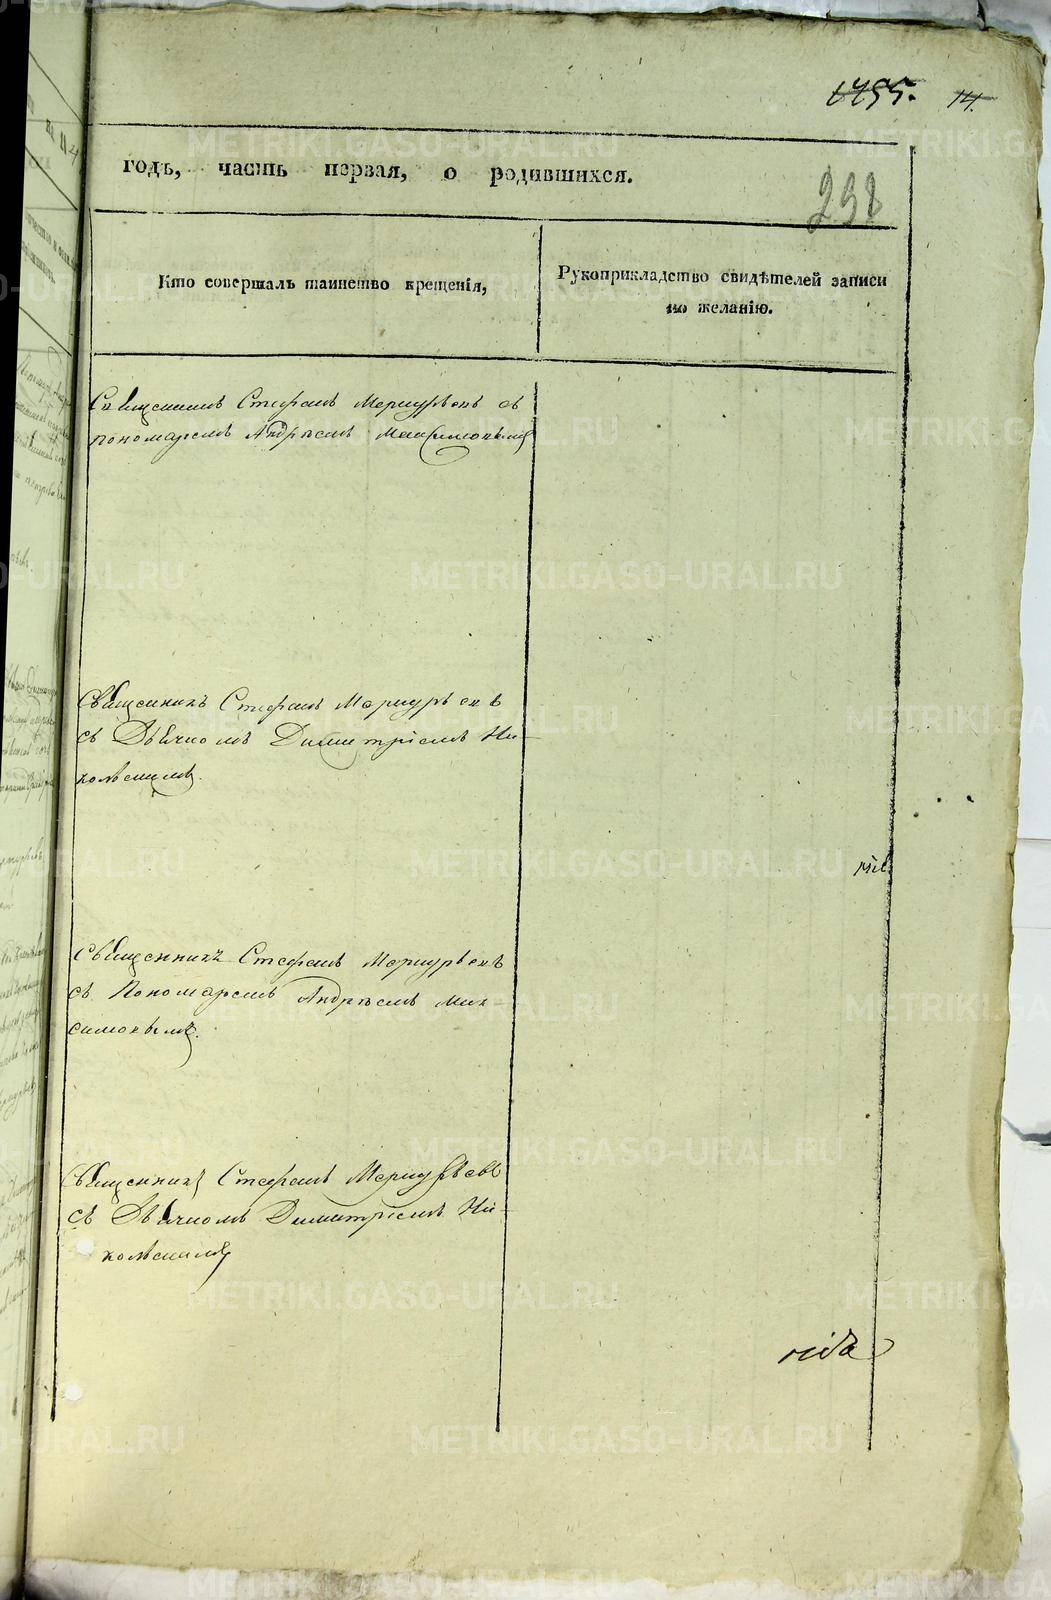 1455. 14.
годъ, часть первая, о родившихся.
298
Кто совершалъ таинство крещенія,
Рукоприкладство свидѣтелей записи
по желанію.
Священникъ Стефанъ Меркурьевъ съ
пономаремъ Андрѣемъ Максимовымъ
Священникъ Стефанъ Меркурьевъ
съ Дьячкомъ Димитріемъ Ни-
Священникъ Стефанъ Меркурьевъ
съ Пономаремъ Андрѣемъ Мак-
симовымъ.
Священникъ Стефанъ Меркурьевъ
съ Дьячкомъ Димитріемъ Ни-
METRIKI.GASO-URAL.RU